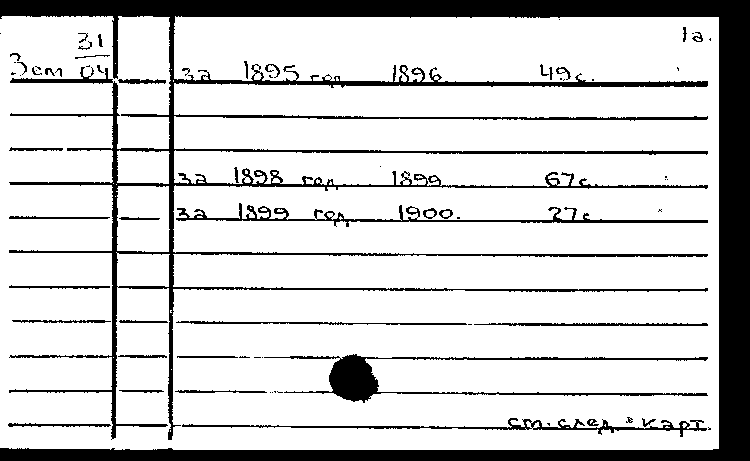 1а.
Зем 31/04 за 1895 год 1896 49с.
за 1898 год 1899 67с.
за 1899 год 1900. 27с
см. след. карт.